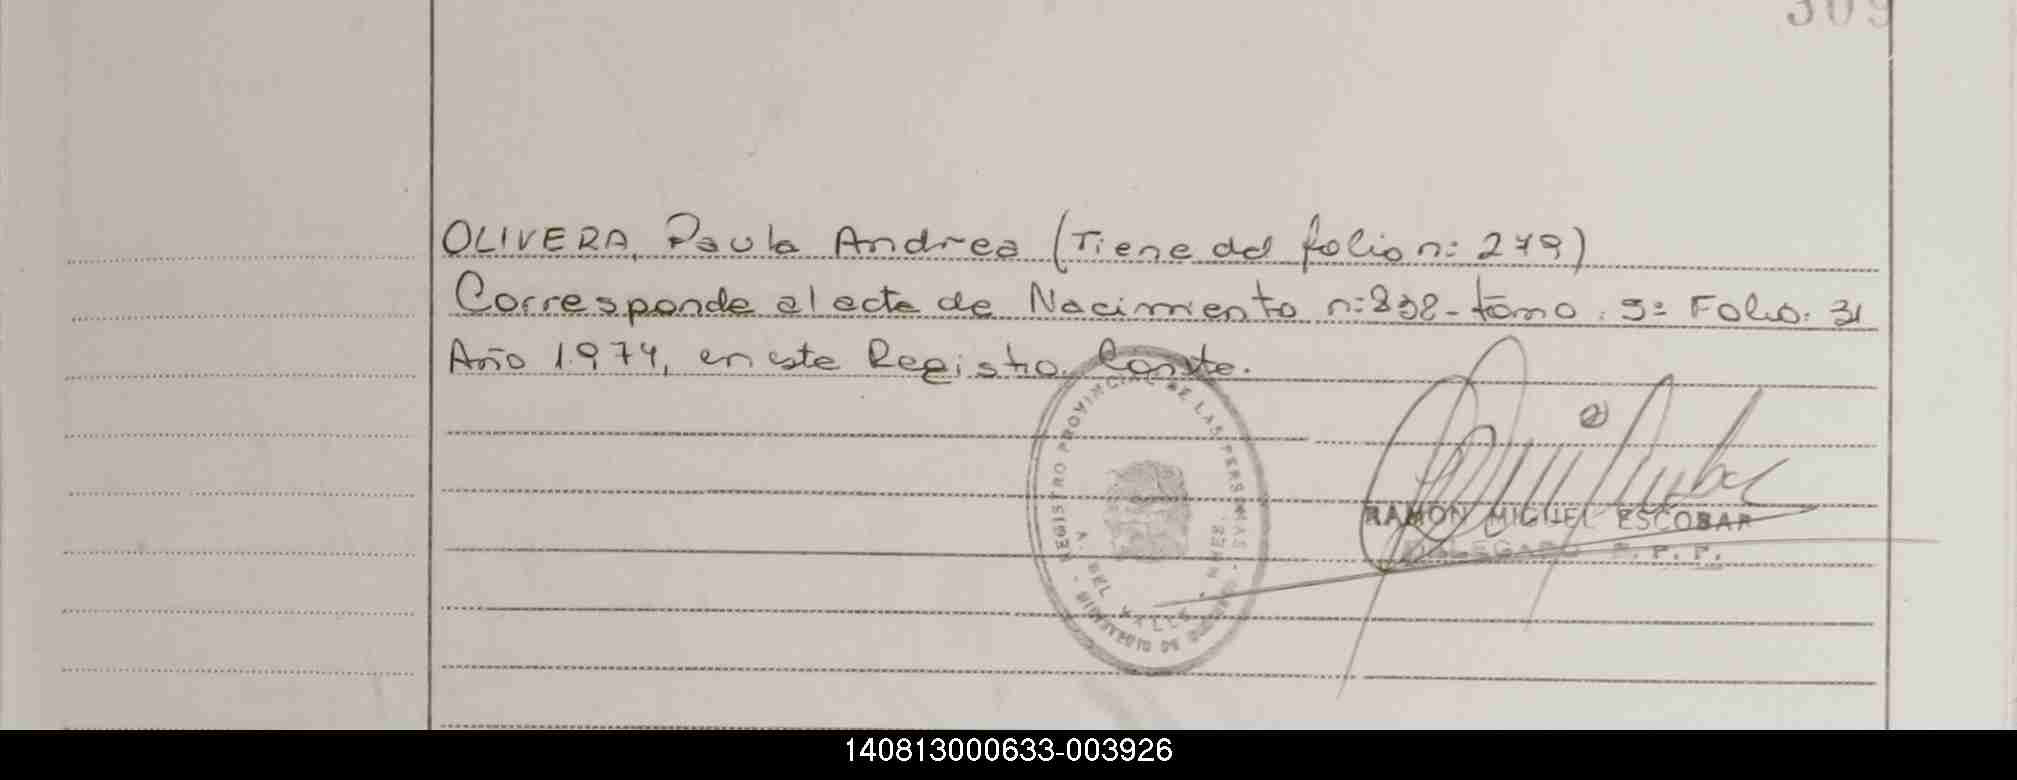 309
OLIVERA, Paula Andrea (Tiene del folio n: 279)
Corresponde al acta de Nacimiento n: 898 - tomo : 5º Folio. 31
Año 1.974, en este Registro. Conste.
REGISTRO PROVINCIAL DE LAS PERSONAS
RAMON MIGUEL ESCOBAR
DELEGADO R. P. P.
140813000633-003926